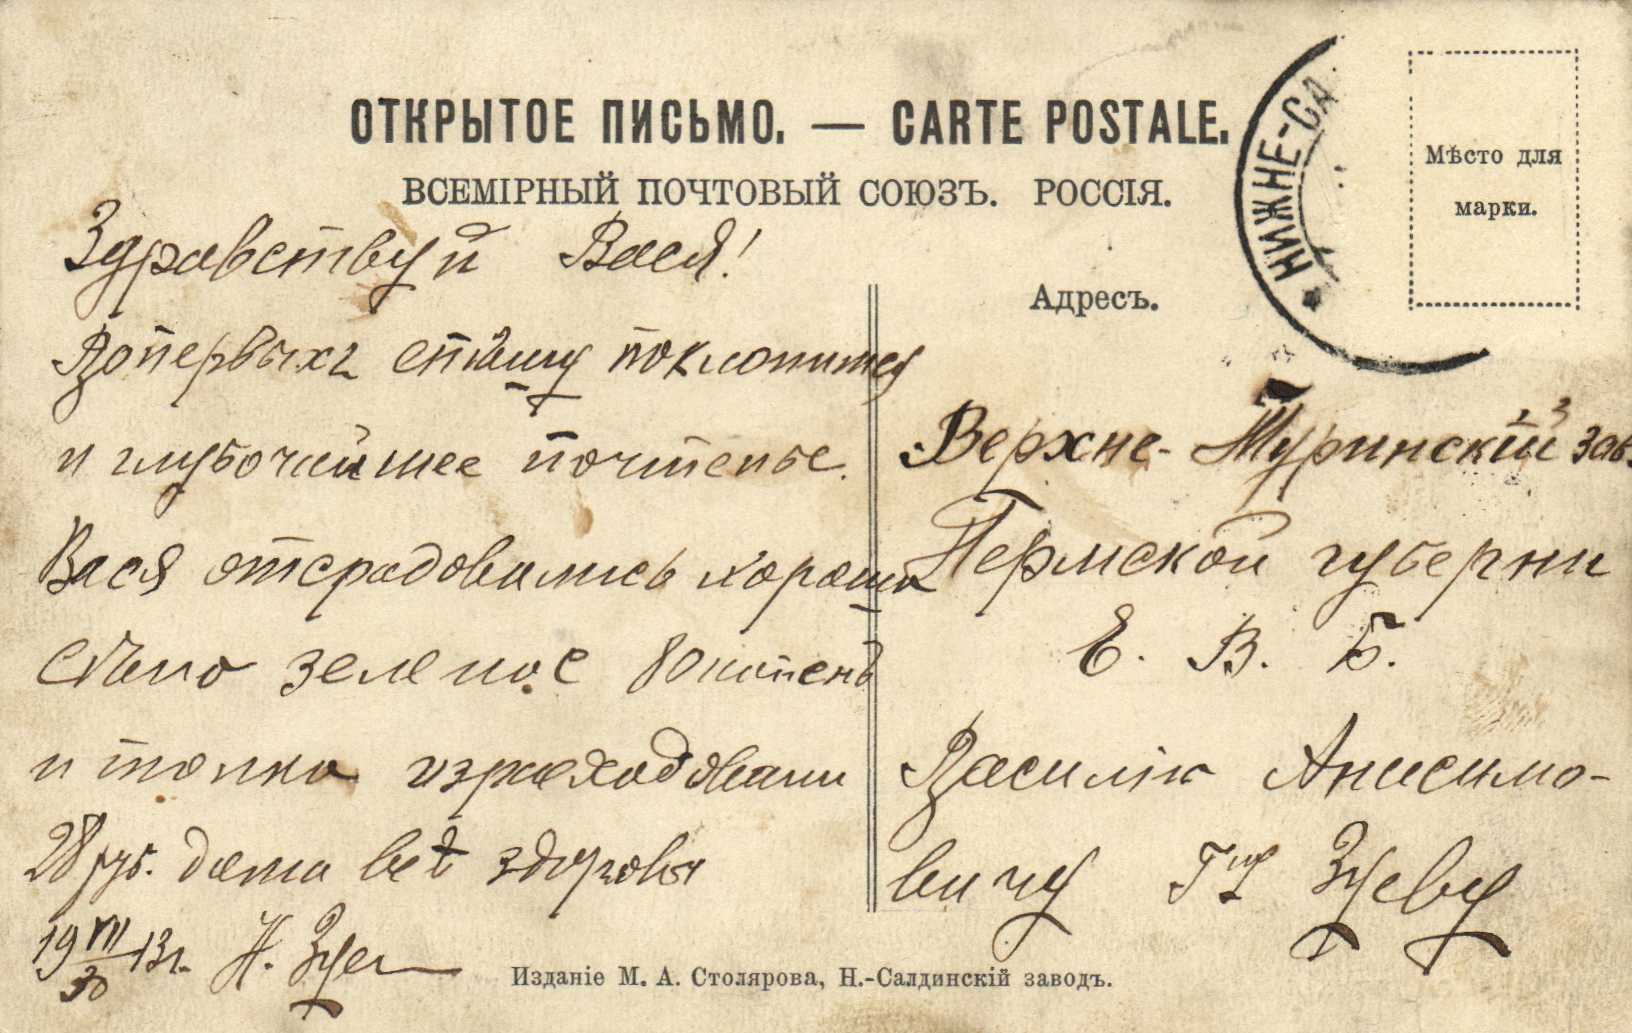 ОТКРЫТОЕ ПИСЬМО. — CARTE POSTALE.
ВСЕМІРНЫЙ ПОЧТОВЫЙ СОЮЗЪ. РОССІЯ.
НИЖНЕ-СА
Мѣсто для
марки.
Адресъ.
Здравствуй Вася!
Вопервыхъ спѣшу
и глубочайшее почтенье.
Вася отстрадовались хорошо
сѣно зеленое 80 копенъ
и толко израсходовали
28 руб. дома всѣ здоровы
19 VII/30 13 г. Н.
Верхне-Туринскій зав.
Пермской губерни
Е. В. Б.
Василію Анисимо-
вичу Гну Зуеву
Изданіе М. А. Столярова, Н.-Салдинскій заводъ.